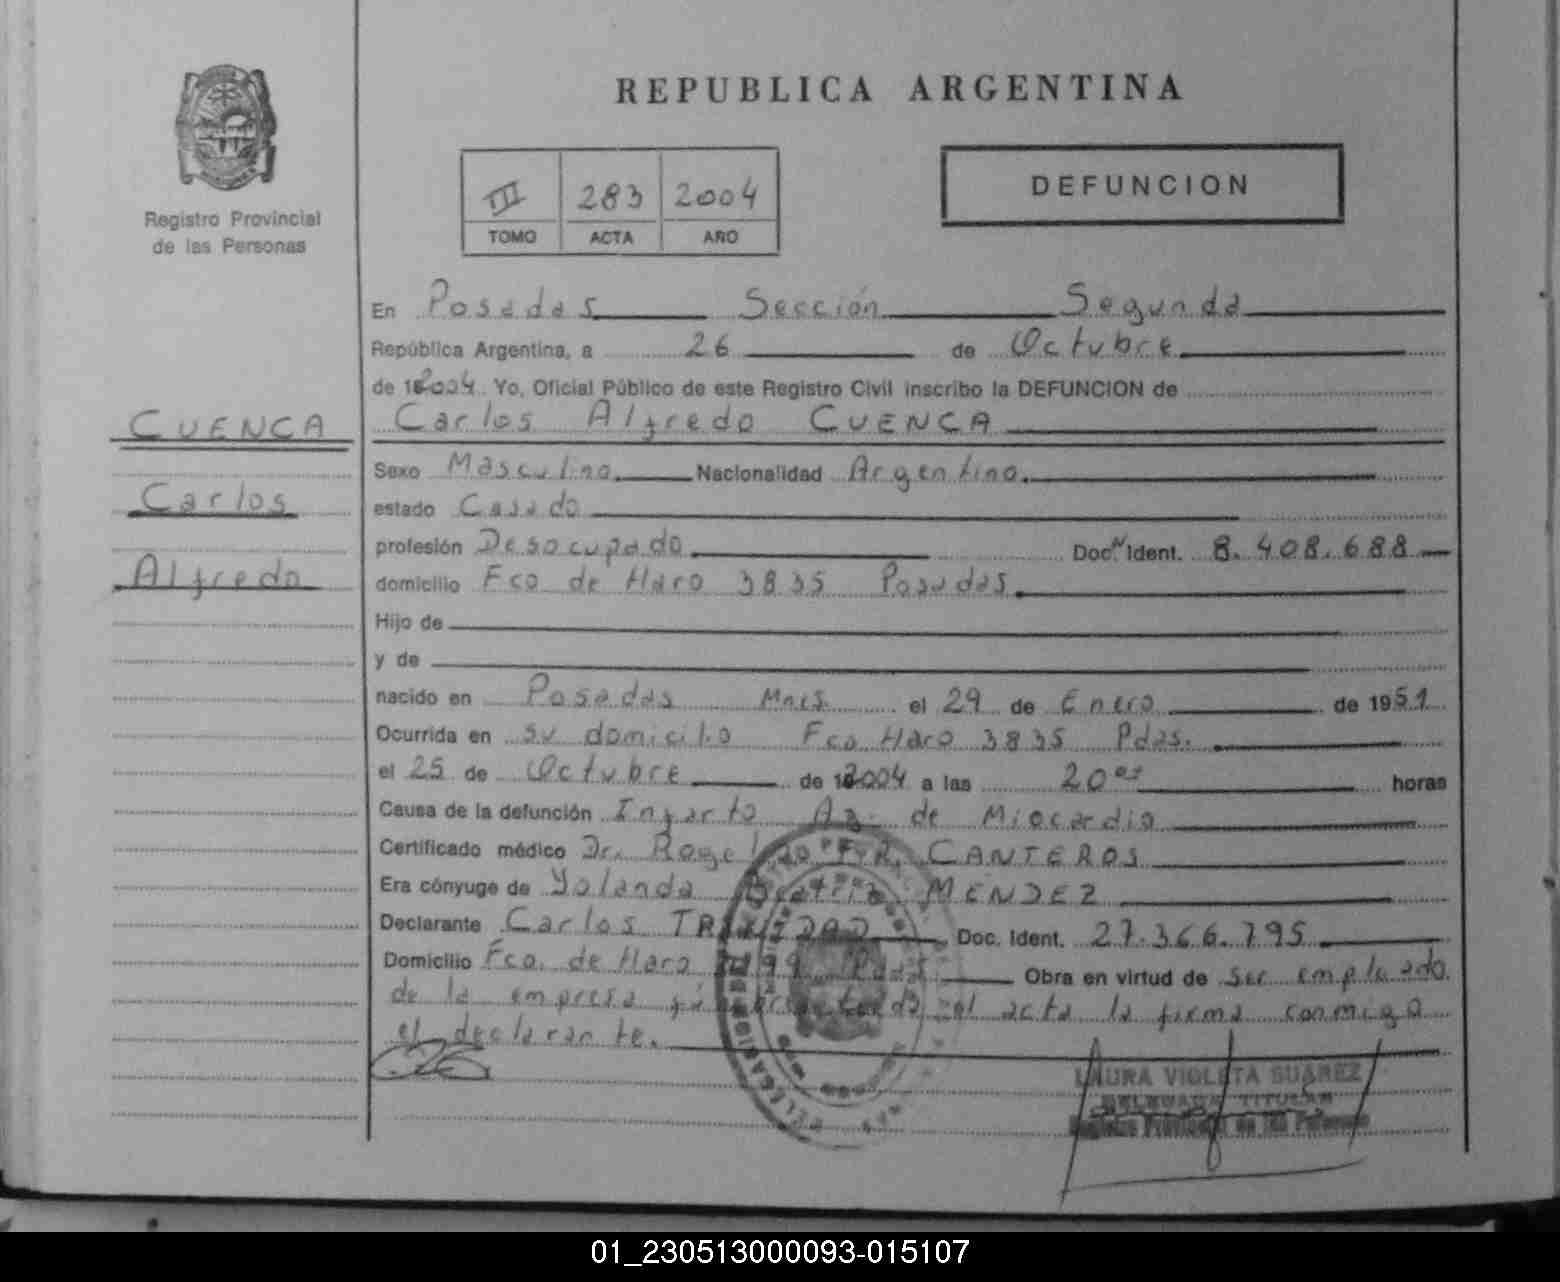 REPUBLICA ARGENTINA
III 283 2004
TOMO ACTA AÑO
DEFUNCION
Registro Provincial
de las Personas
En Posadas Sección Segunda
República Argentina, a 26 de Octubre
de 2004. Yo, Oficial Público de este Registro Civil inscribo la DEFUNCION de
CUENCA
Carlos Alfredo CUENCA
Sexo Masculino. Nacionalidad Argentino.
Carlos
estado Casado
profesión Desocupado Doc. Ident. 8.408.688
Alfredo
domicilio Fco de Haro 3835 Posadas.
Hijo de
y de
nacido en Posadas Mnes. el 29 de Enero de 1951
Ocurrida en su domicilio Fco Haro 3835 Pdas.
el 25 de Octubre de 2004 a las 20 horas
Causa de la defunción Infarto Ag. de Miocardio
Certificado médico Dr. CANTEROS
Era cónyuge de Yolanda Beatriz MENDEZ
Declarante Carlos TRINIDAD Doc. Ident. 27.366.795
Domicilio Fco. de Haro Pdas. Obra en virtud de ser empleado
de la empresa el acta la firma conmigo
el declarante.
LAURA VIOLETA SUAREZ
DELEGADA TITULAR
Registro Provincial de las Personas
01_230513000093-015107